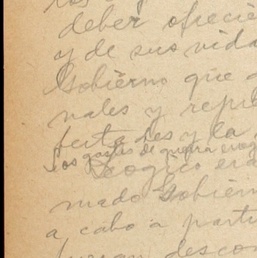 deber ofrecie
y de sus vida
Gobierno que d
nales y repre
y la
Los gastos de guerra
era
mado Gobiern
a cabo a parti
fueran desco